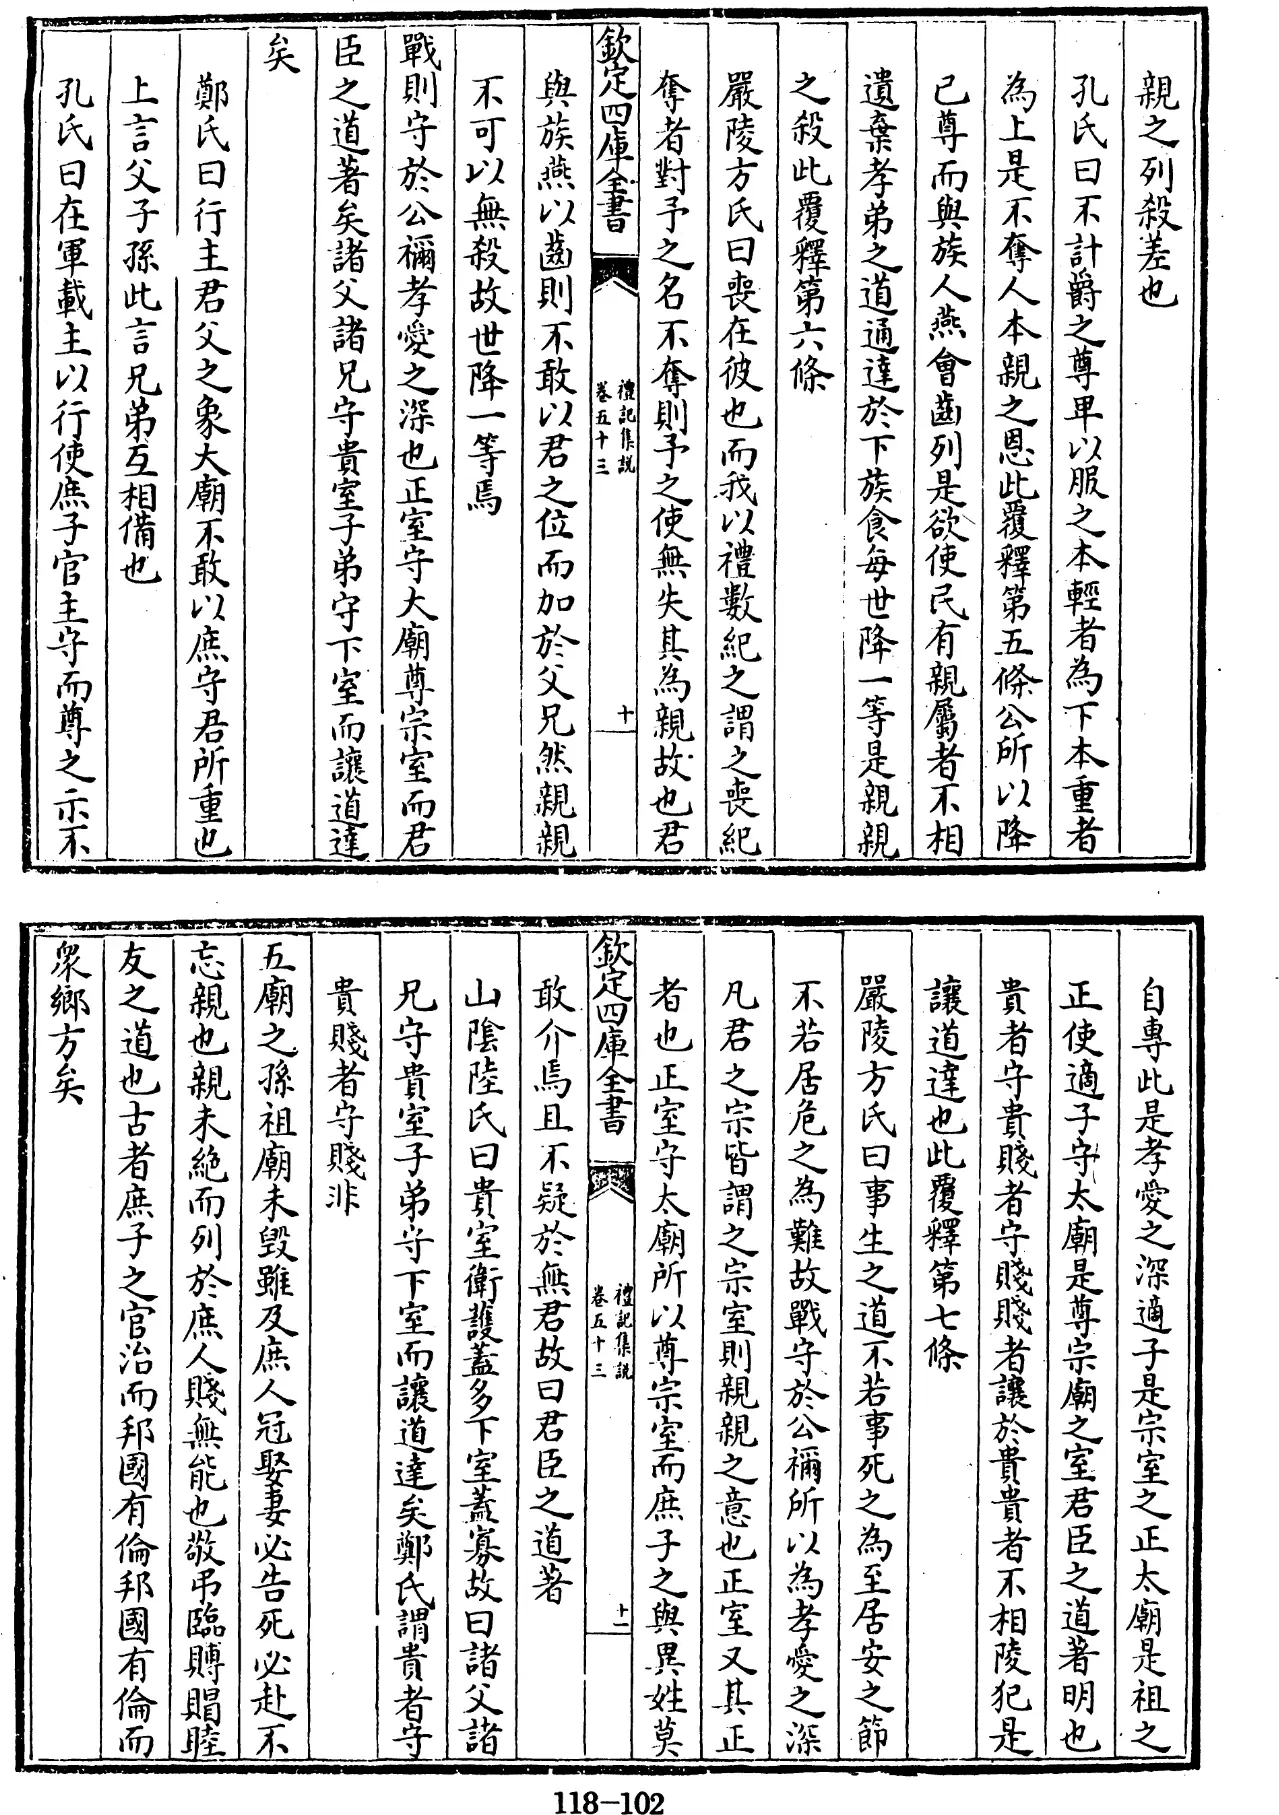 親之列殺差也
孔氏曰不計爵之尊卑以服之本輕者為下本重者
為上是不奪人本親之恩此覆釋第五條公所以降
已尊而與族人燕會齒列是欲使民有親屬者不相
遺棄孝弟之道通達於下族食每世降一等是親親
之殺此覆釋第六條
嚴陵方氏曰喪在彼也而我以禮數紀之謂之喪紀
奪者對予之名不奪則予之使無失其為親故也君
欽定四庫全書
禮記集説
卷五十三
十
與族燕以齒則不敢以君之位而加於父兄然親親
不可以無殺故世降一等焉
戰則守於公禰孝愛之深也正室守大廟尊宗室而君
臣之道著矣諸父諸兄守貴室子弟守下室而讓道達
矣
鄭氏曰行主君父之象大廟不敢以庶守君所重也
上言父子孫此言兄弟互相備也
孔氏曰在軍載主以行使庶子官主守而尊之示不
自專此是孝愛之深適子是宗室之正太廟是祖之
正使適子守太廟是尊宗廟之室君臣之道著明也
貴者守貴賤者守賤賤者讓於貴貴者不相陵犯是
讓道達也此覆釋第七條
嚴陵方氏曰事生之道不若事死之為至居安之節
不若居危之為難故戰守於公禰所以為孝愛之深
凡君之宗皆謂之宗室則親親之意也正室又其正
者也正室守太廟所以尊宗室而庶子之與異姓莫
欽定四庫全書
禮記集説
卷五十三
十一
敢介焉且不疑於無君故曰君臣之道著
山陰陸氏曰貴室衛護蓋多下室蓋寡故曰諸父諸
兄守貴室子弟守下室而讓道達矣鄭氏謂貴者守
貴賤者守賤非
五廟之孫祖廟未毀雖及庶人冠娶妻必告死必赴不
忘親也親未絶而列於庶人賤無能也敬弔臨賻賵睦
友之道也古者庶子之官治而邦國有倫邦國有倫而
衆鄉方矣
118-102